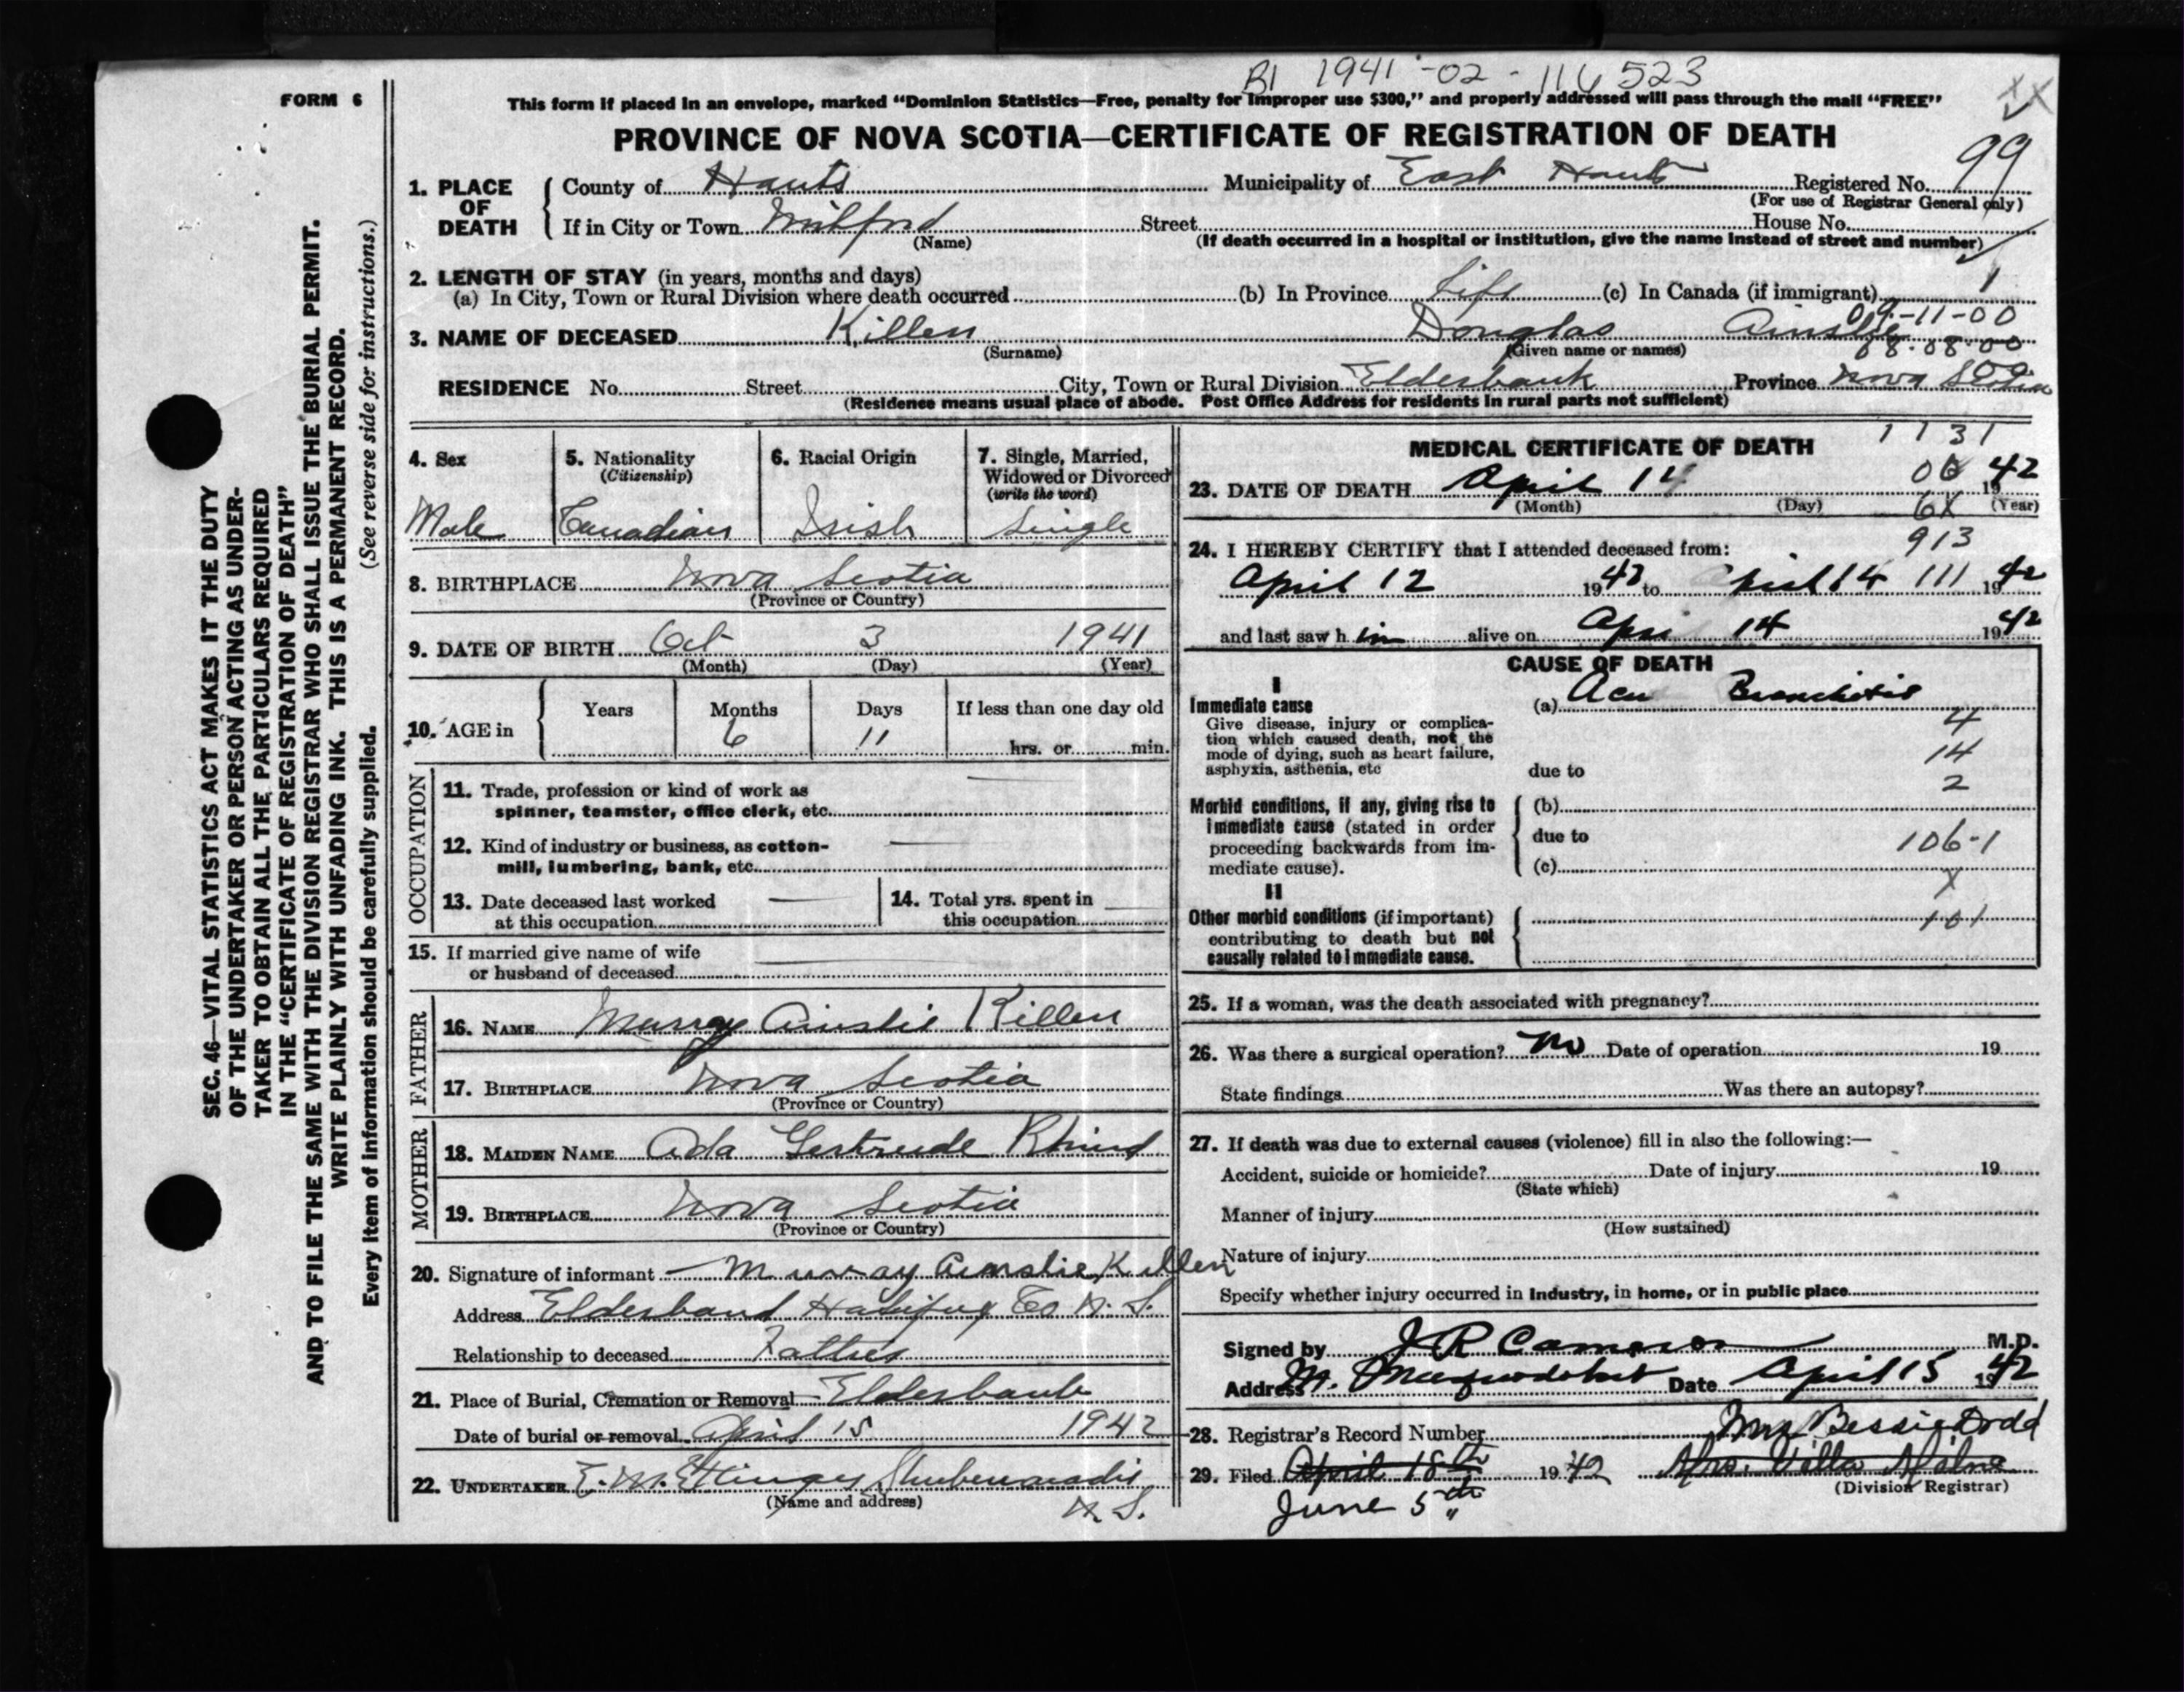 BI 1941-02-116523
FORM 6
This form if placed in an envelope, marked "Dominion Statistics—Free, penalty for improper use $300," and properly addressed will pass through the mail "FREE"
PROVINCE OF NOVA SCOTIA—CERTIFICATE OF REGISTRATION OF DEATH
99
1. PLACE OF DEATH County of Hants Municipality of East Hants Registered No.
(For use of Registrar General only)
If in City or Town Milford Street House No.
(Name) (If death occurred in a hospital or institution, give the name instead of street and number)
2. LENGTH OF STAY (in years, months and days) 1
(a) In City, Town or Rural Division where death occurred (b) In Province Life (c) In Canada (if immigrant)
09-11-00
3. NAME OF DECEASED Killen Douglas Ainslie
(Surname) (Given name or names) 68-08-00
RESIDENCE No. Street City, Town or Rural Division Elderbank Province Nova Scotia
(Residence means usual place of abode. Post Office Address for residents in rural parts not sufficient)
SEC. 46—VITAL STATISTICS ACT MAKES IT THE DUTY
OF THE UNDERTAKER OR PERSON ACTING AS UNDER-
TAKER TO OBTAIN ALL THE PARTICULARS REQUIRED
IN THE "CERTIFICATE OF REGISTRATION OF DEATH"
AND TO FILE THE SAME WITH THE DIVISION REGISTRAR WHO SHALL ISSUE THE BURIAL PERMIT.
WRITE PLAINLY WITH UNFADING INK. THIS IS A PERMANENT RECORD.
Every item of information should be carefully supplied. (See reverse side for instructions.)
4. Sex 5. Nationality 6. Racial Origin 7. Single, Married,
(Citizenship) Widowed or Divorced
(write the word)
Male Canadian Irish Single
8. BIRTHPLACE Nova Scotia
(Province or Country)
9. DATE OF BIRTH Oct 3 1941
(Month) (Day) (Year)
10. AGE in Years Months Days If less than one day old
6 11 hrs. or min.
OCCUPATION
11. Trade, profession or kind of work as
spinner, teamster, office clerk, etc.
12. Kind of industry or business, as cotton-
mill, lumbering, bank, etc.
13. Date deceased last worked 14. Total yrs. spent in
at this occupation this occupation
15. If married give name of wife
or husband of deceased
FATHER
16. NAME Murray Ainslie Killen
17. BIRTHPLACE Nova Scotia
(Province or Country)
MOTHER
18. MAIDEN NAME Ada Gertrude Rhind
19. BIRTHPLACE Nova Scotia
(Province or Country)
20. Signature of informant Murray Ainslie Killen
Address Elderbank Halifax Co N. S.
Relationship to deceased Father
21. Place of Burial, Cremation or Removal Elderbank
Date of burial or removal April 15 1942
22. UNDERTAKER E. M. Ettinger Shubenacadie
(Name and address) N. S.
1131
MEDICAL CERTIFICATE OF DEATH
23. DATE OF DEATH April 14 1942
(Month) (Day) (Year)
24. I HEREBY CERTIFY that I attended deceased from: 913
April 12 1942 to April 14 111 1942
and last saw him alive on April 14 1942
CAUSE OF DEATH
I
Immediate cause (a) Bronchitis
Give disease, injury or complica- 4
tion which caused death, not the
mode of dying, such as heart failure, 14
asphyxia, asthenia, etc due to
2
Morbid conditions, if any, giving rise to (b)
immediate cause (stated in order due to
proceeding backwards from im- 106-1
mediate cause). (c)
II
Other morbid conditions (if important) 101
contributing to death but not
causally related to immediate cause.
25. If a woman, was the death associated with pregnancy?
26. Was there a surgical operation? No Date of operation 19
State findings Was there an autopsy?
27. If death was due to external causes (violence) fill in also the following:—
Accident, suicide or homicide? Date of injury 19
(State which)
Manner of injury
(How sustained)
Nature of injury
Specify whether injury occurred in Industry, in home, or in public place
Signed by J R Cameron M.D.
Address M. Musquodoboit Date April 15 1942
28. Registrar's Record Number Mrs Bessie Dodd
29. Filed April 18th 1942 Mrs. Villa Milne
(Division Registrar)
June 5th "